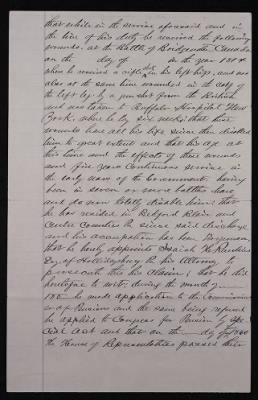 that while in the service aforesaid and in
the line of his duty he received the following
wounds. at the Battle of Bridgewater Canada
on the day of in the year 1814
when he received a rifle shot in his left hip, and was
also at the same time wounded in the calf of
the left leg by a gun shot from the British
and was taken to Buffalo Hospital New
York, where he lay six weeks, that his
wounds have all his life since then disabled
him to great extent and that his age at
this time and the effects of these wounds
and five years continuous service in
the early wars of the Government, having
been in seven or more battles have
and do now totally disable him; that
he has resided in Bedford Blair and
Centre Counties Pa since said discharge
and his occupation has been
that he hereby appoints
Esq of Hollidaysburg Pa his Attorney to
prosecute this his claim; that he did
heretofore to wit; during the month of
185 he made application to the Commissioner
of Pensions and the same being refused
he applied to Congress for Pension by Spe-
cial Act and that on the day of 1860
the House of Representatives passed their